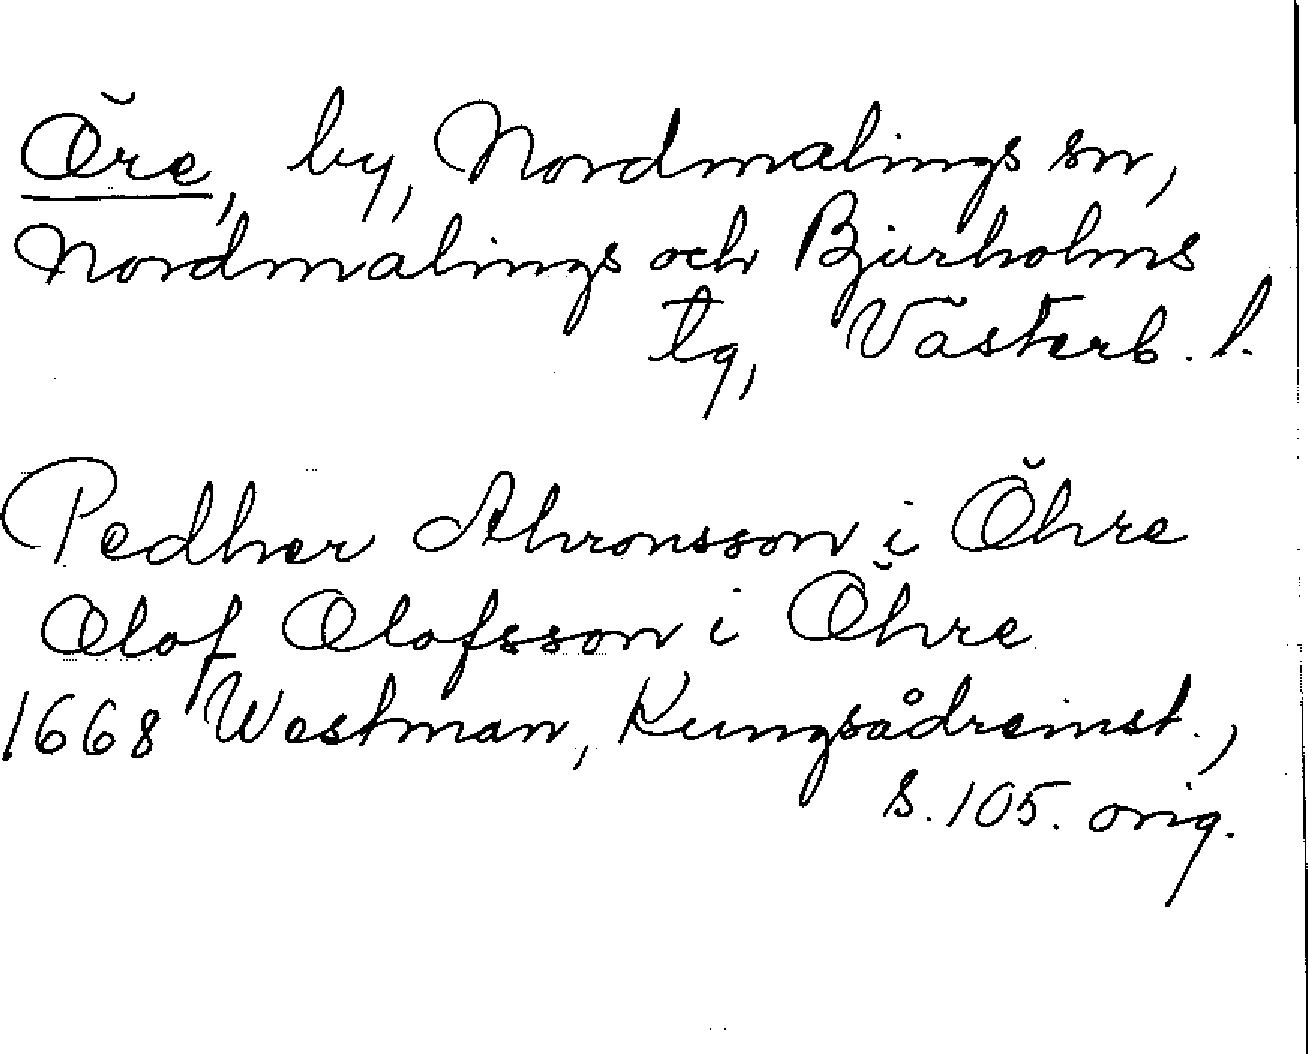 Öre, by, Nordmalings sn,
Nordmalings och Bjurholms
tg, Västerb. l.
Pedher Ahronsson i Öhre
Olof Olofsson i Öhre
1668 Westman, Kungsådreinst.,
s. 105. orig.